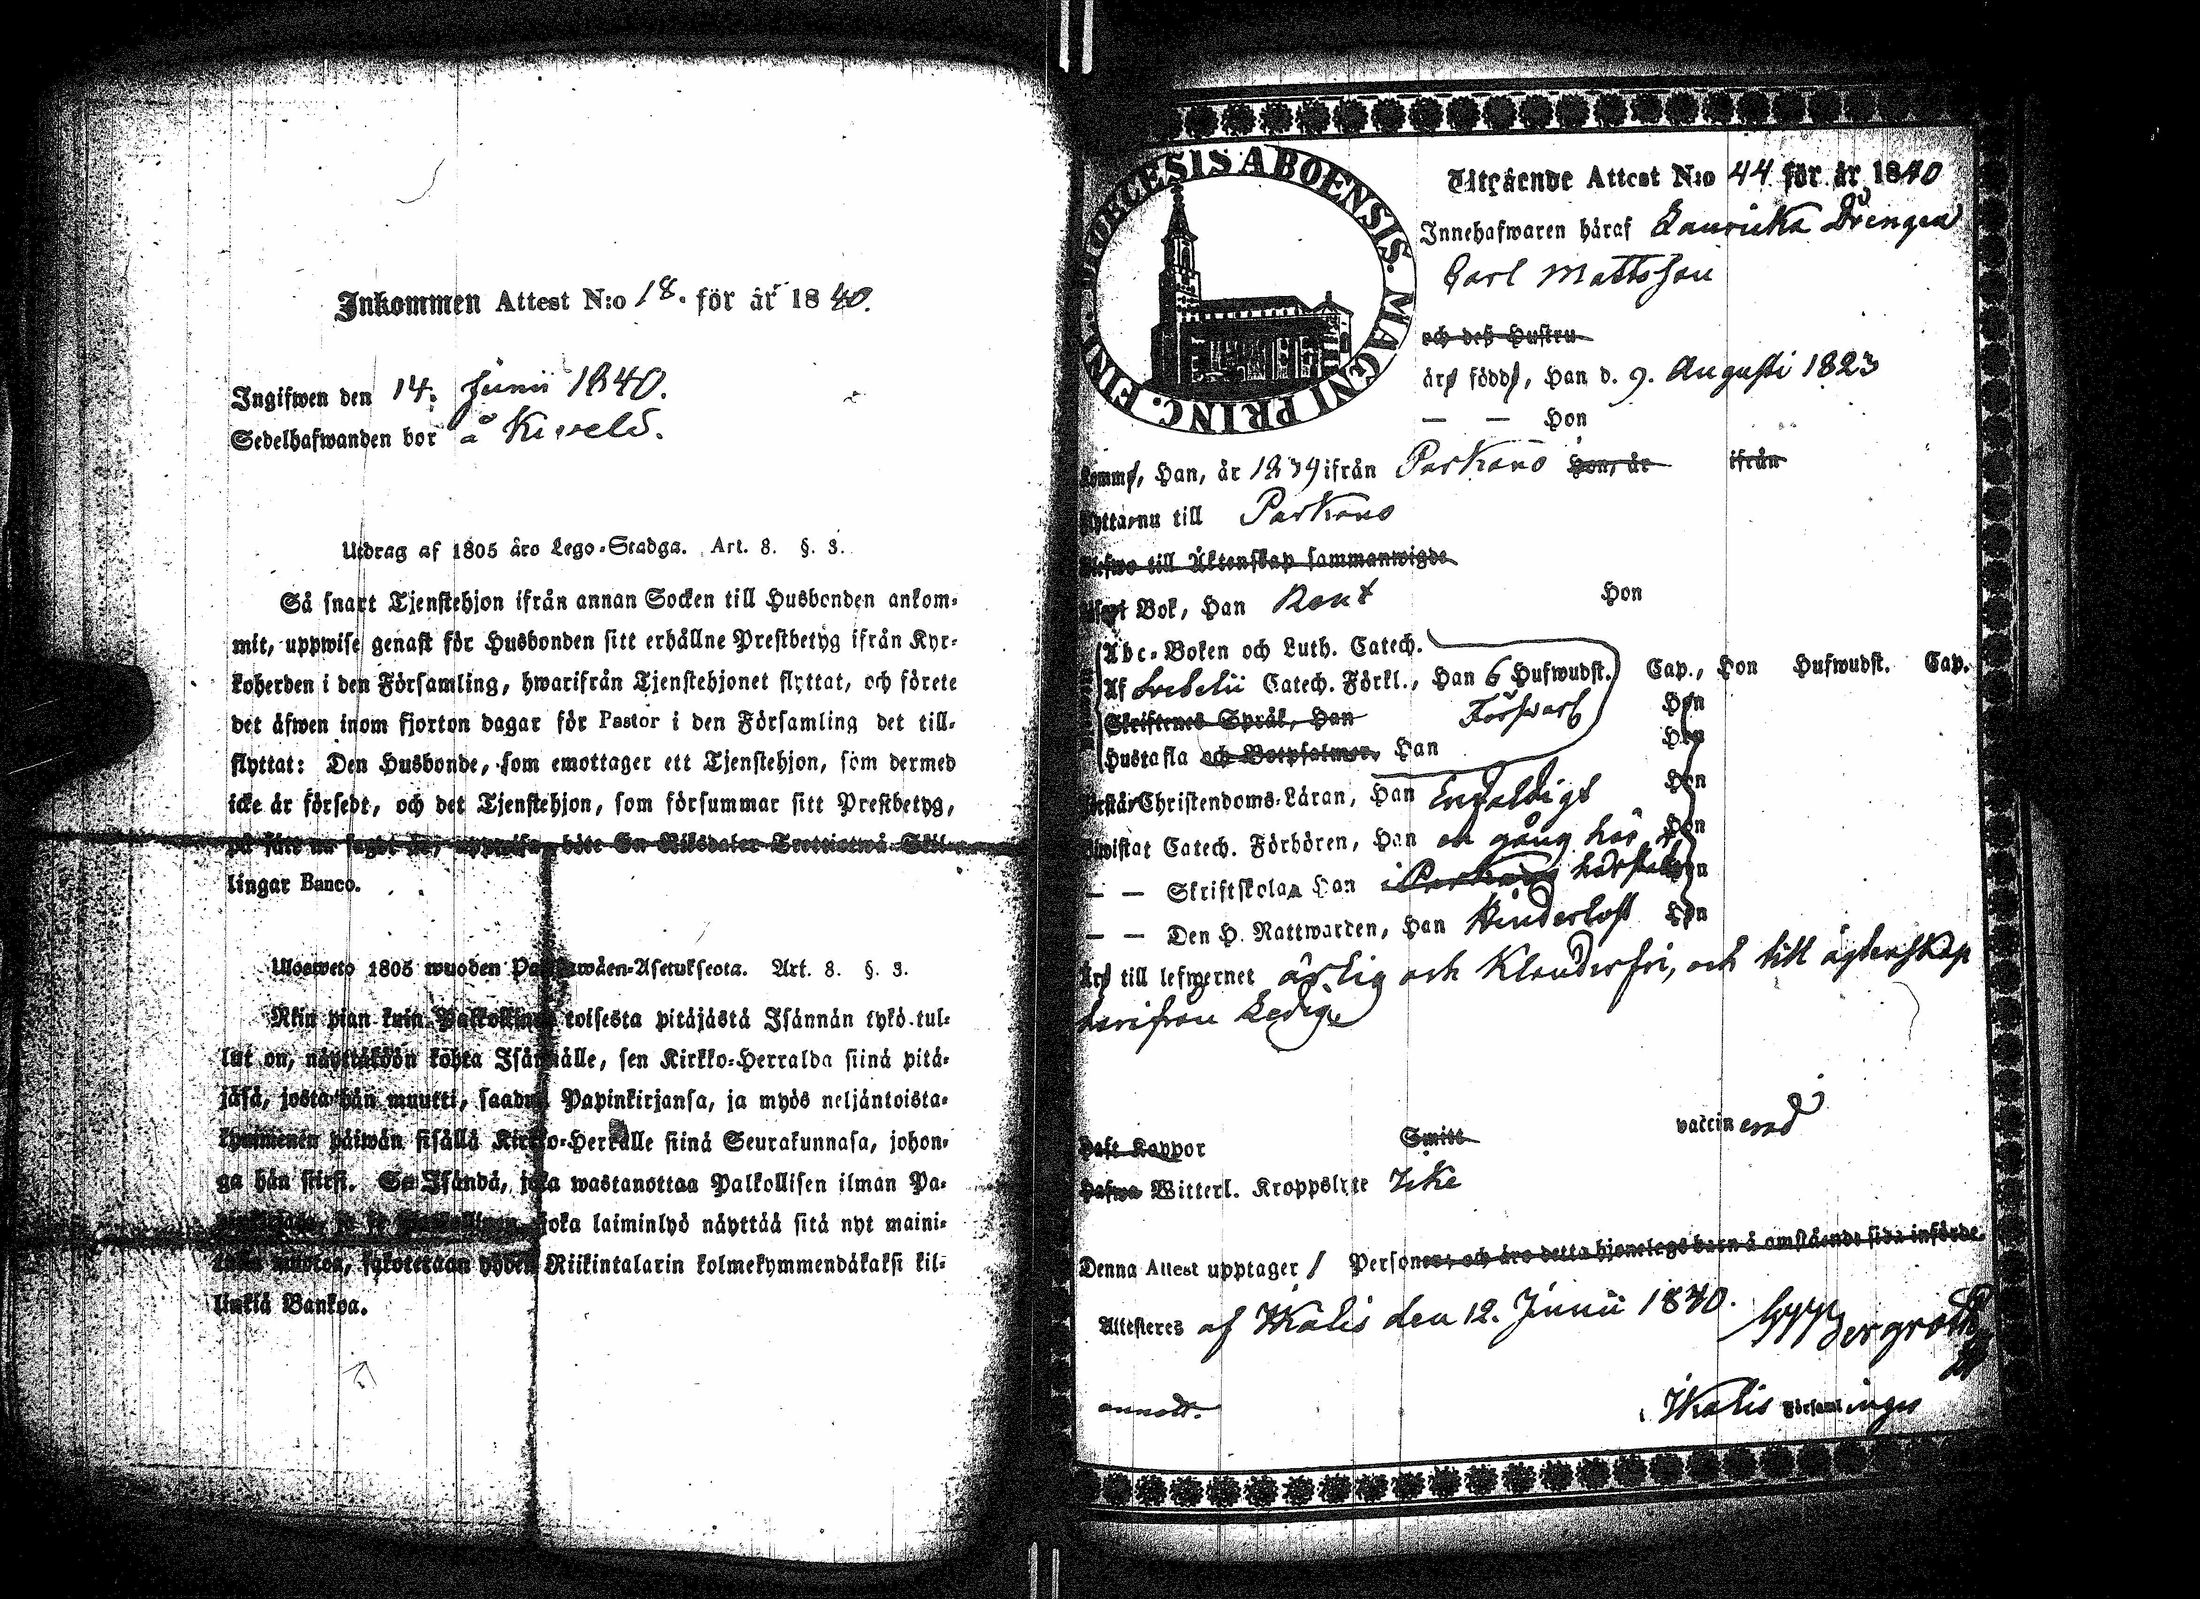 Inkommen Attest N:o 18. för år 1840.
Ingifwen den 14. Junii 1840.
Sedelhafwanden bor å
Utdrag af 1805 års Lego-Stadga. Art. 8. §. 3.
Så snart Tjenstehjon ifrån annan Socken till Husbonden ankom-
mit, uppwise genast för Husbonden sitt erhållne Prestbetyg ifrån Kyr-
koherden i den Församling, hwarifrån Tjenstehjonet flyttat, och förete
det äfwen inom fjorton dagar för Pastor i den Församling det till-
flyttat: Den Husbonde, som emottager ett Tjenstehjon, som dermed
icke är försedt, och det Tjenstehjon, som försummar sitt Prestbetyg,
på sätt nu sagdt är, uppwisa, böte En Riksdaler Trettiotwå Skil-
lingar Banco.
Ulosweto 1805 wuoden Palkkawäen-Asetuksesta. Art. 8. §. 3.
Niin pian kuin Palkollinen toisesta pitäjästä Isännän tykö tul-
lut on, näyttäköön kohta Isännälle, sen Kirkko-Herralda siinä pitä-
jäsä, josta hän muutti, saadun Papinkirjansa, ja myös neljäntoista-
kymmenen päiwän sisällä Kirkko-Herralle siinä Seurakunnasa, johon-
ga hän siirsi. Se Isändä, joka wastanottaa Palkollisen ilman Pa-
joka laiminlyö näyttää sitä nyt maini-
tulla muotoa, sakotetaan yhden Riikintalarin kolmekymmendäkaksi kil-
linkiä Bankoa.
DIOECESIS ABOENSIS. MAGNI PRINC. FINL.
Utgående Attest N:o 44 för år 1840
Innehafwaren häraf Drengen
Carl Mattsson
och deß Hustru
äro födde, Han d. 9. Augusti 1823
— — Hon
Komme, Han, år 1839 ifrån Parkano Hon, år ifrån
Flytta nu till Parkano
Blefwo till Äktenskap sammanwigde
Bok, Han Rent Hon
Abc-Boken och Luth. Catech.
Af Svebelii Catech. Förkl., Han 6 Hufwudst. Cap., Hon Hufwudst. Cap.
Skriftenes Språk, Han Förswarl Hon
Hustafla och Botpsalmer, Han Hon
Förstår Christendoms-Läran, Han Enfaldigt Hon
Bewistat Catech. Förhören, Han en gång här Hon
— — Skriftskolan Han Hon
— — Den H. Nattwarden, Han Hinderlöst Hon
Äro till lefwernet ärlig och Klanderfri, och till ägtenskap
härifrån Ledig
Haft Koppor Smitt vaccinerad
Hafwa Witterl. Kroppslyte Icke
Denna Attest upptager 1 Personer och äro detta hjonelags barn å omstående sida införde.
Attesteres af Ikalis den 12. Junii 1840. Bergroth
annot. Ikalis Församlinges